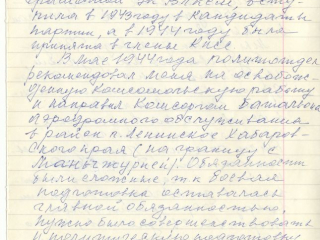 пила в 1943 году в кандидаты
партии, а в 1944 году была
принята в члены КПСС.
В мае 1944 года политотдел
рекомендовал меня на освобож-
денную комсомольскую работу
и направил комсоргом батальона
аэродромного обслуживания
в район п. Ленинское Хабаров-
ского края (на границу с
Маньчжурией). Обязанности
были сложные, т.к. боевая
подготовка оставалась
главной обязанностью,
нужно было совершенствовать
и политическую подготовку